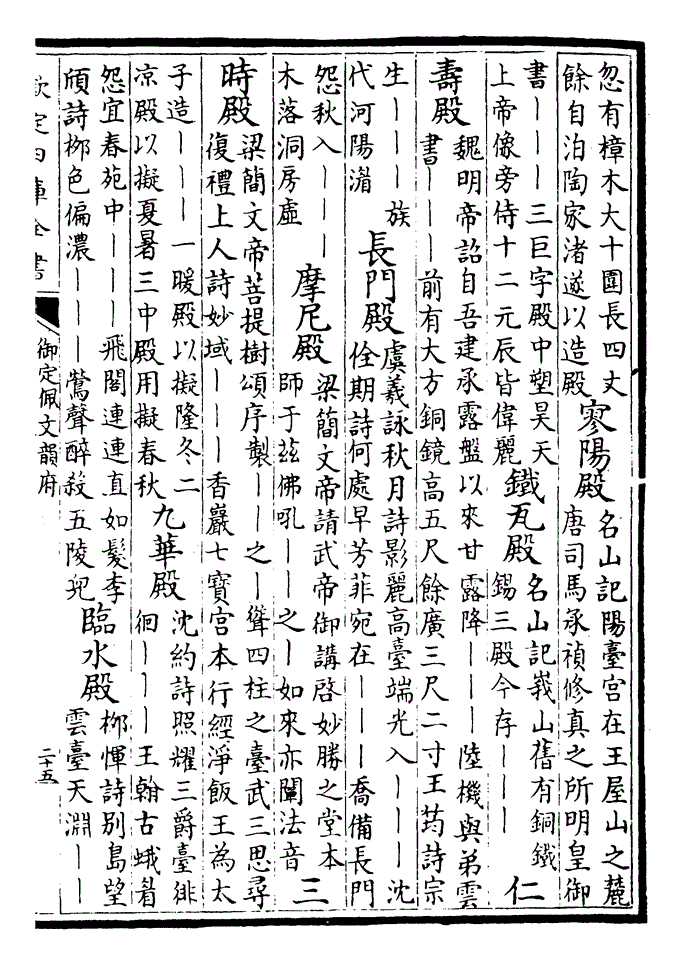 忽有樟木大十圍長四丈
餘自泊陶家渚遂以造殿
寥陽殿
名山記陽臺宫在王屋山之麓
唐司馬承禎修真之所明皇御
書｜｜｜三巨字殿中塑昊天
上帝像旁侍十二元辰皆偉麗
鐵瓦殿
名山記峩山舊有銅鐵
錫三殿今存｜｜｜
仁
壽殿
魏明帝詔自吾建承露盤以來甘露降｜｜｜陸機與弟雲
書｜｜｜｜前有大方銅鏡高五尺餘廣三尺二寸王筠詩宗
生｜｜｜族
代河陽潘
長門殿
虞羲詠秋月詩影麗高臺端光入｜｜｜沈
佺期詩何處早芳菲宛在｜｜｜喬備長門
怨秋入｜｜｜
木落洞房虛
摩尼殿
梁簡文帝請武帝御講啓妙勝之堂本
師于兹佛吼｜｜之｜如來亦闡法音
三
時殿
梁簡文帝菩提樹頌序製｜｜之｜聳四柱之臺武三思尋
復禮上人詩妙域｜｜｜香巖七寶宫本行經淨飯王為太
子造｜｜｜一暖殿以擬隆冬二
凉殿以擬夏暑三中殿用擬春秋
九華殿
沈約詩照耀三爵臺徘
徊｜｜｜王翰古蛾眉
怨宜春苑中｜｜｜飛閣連連直如髮李
頎詩栁色偏濃｜｜｜鶯聲醉殺五陵兒
臨水殿
栁惲詩别島望
雲臺天淵｜｜
欽定四庫全書
御定佩文韻府
二十五